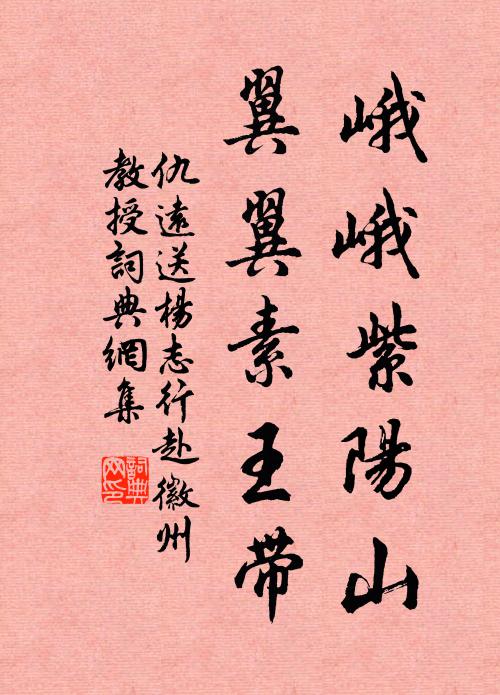 峨峨紫陽山
翼翼素王带
仇遠送楊志行赴徽州
教授詞典網集
詞典
网印